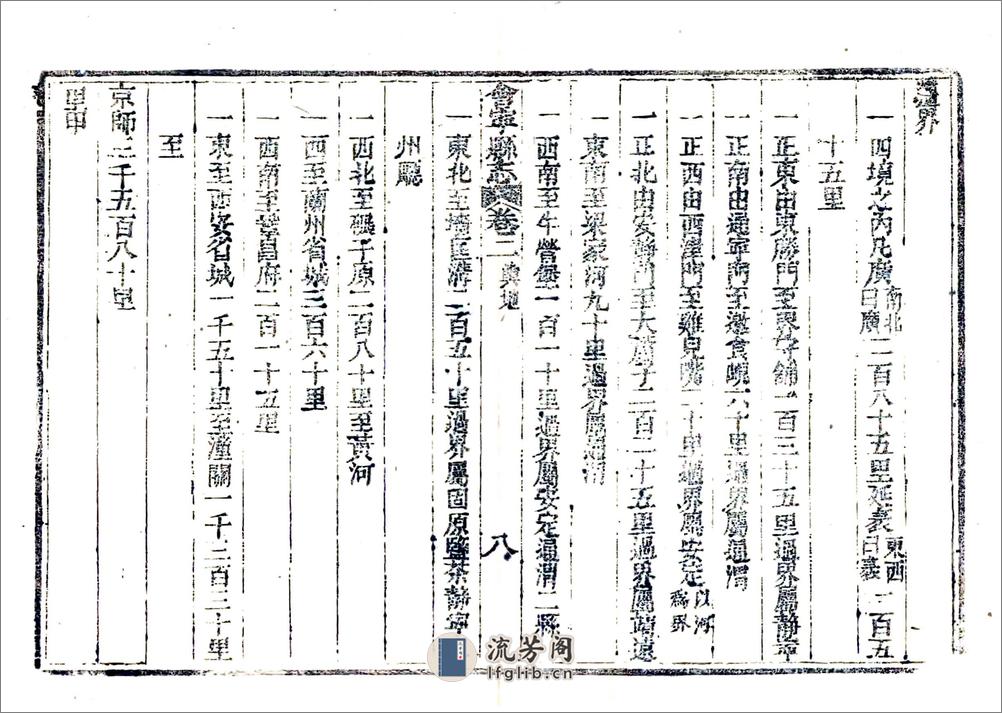 邊界
一四境之內凡廣南北曰廣二百八十五里延袤東西曰袤二百五
十五里
一正東由東勝門至界守鋪一百三十五里過界屬靜寧
一正南由通寧門至邀食峴六十里過界屬通渭
一正西由西津門至雞兒嘴二十里過界屬安定以河為界
一正北由安靜門至大廟子二百二十五里過界屬靖遠
一東南至梁家河九十里過界屬通渭
會寧縣志卷二 輿地 八
一西南至牛營堡一百一十里過界屬安定通渭二縣
一東北至墻匡溝二百五十里過界屬固原鹽茶靜寧
州廳
一西北至碾子原二百八十里至黃河
一西至蘭州省城三百六十里
一西南至鞏昌府二百一十五里
一東至西安省城一千五十里至潼關一千二百三十里
至
京師三千五百八十里
里甲
流芳阁
lfglib.cn